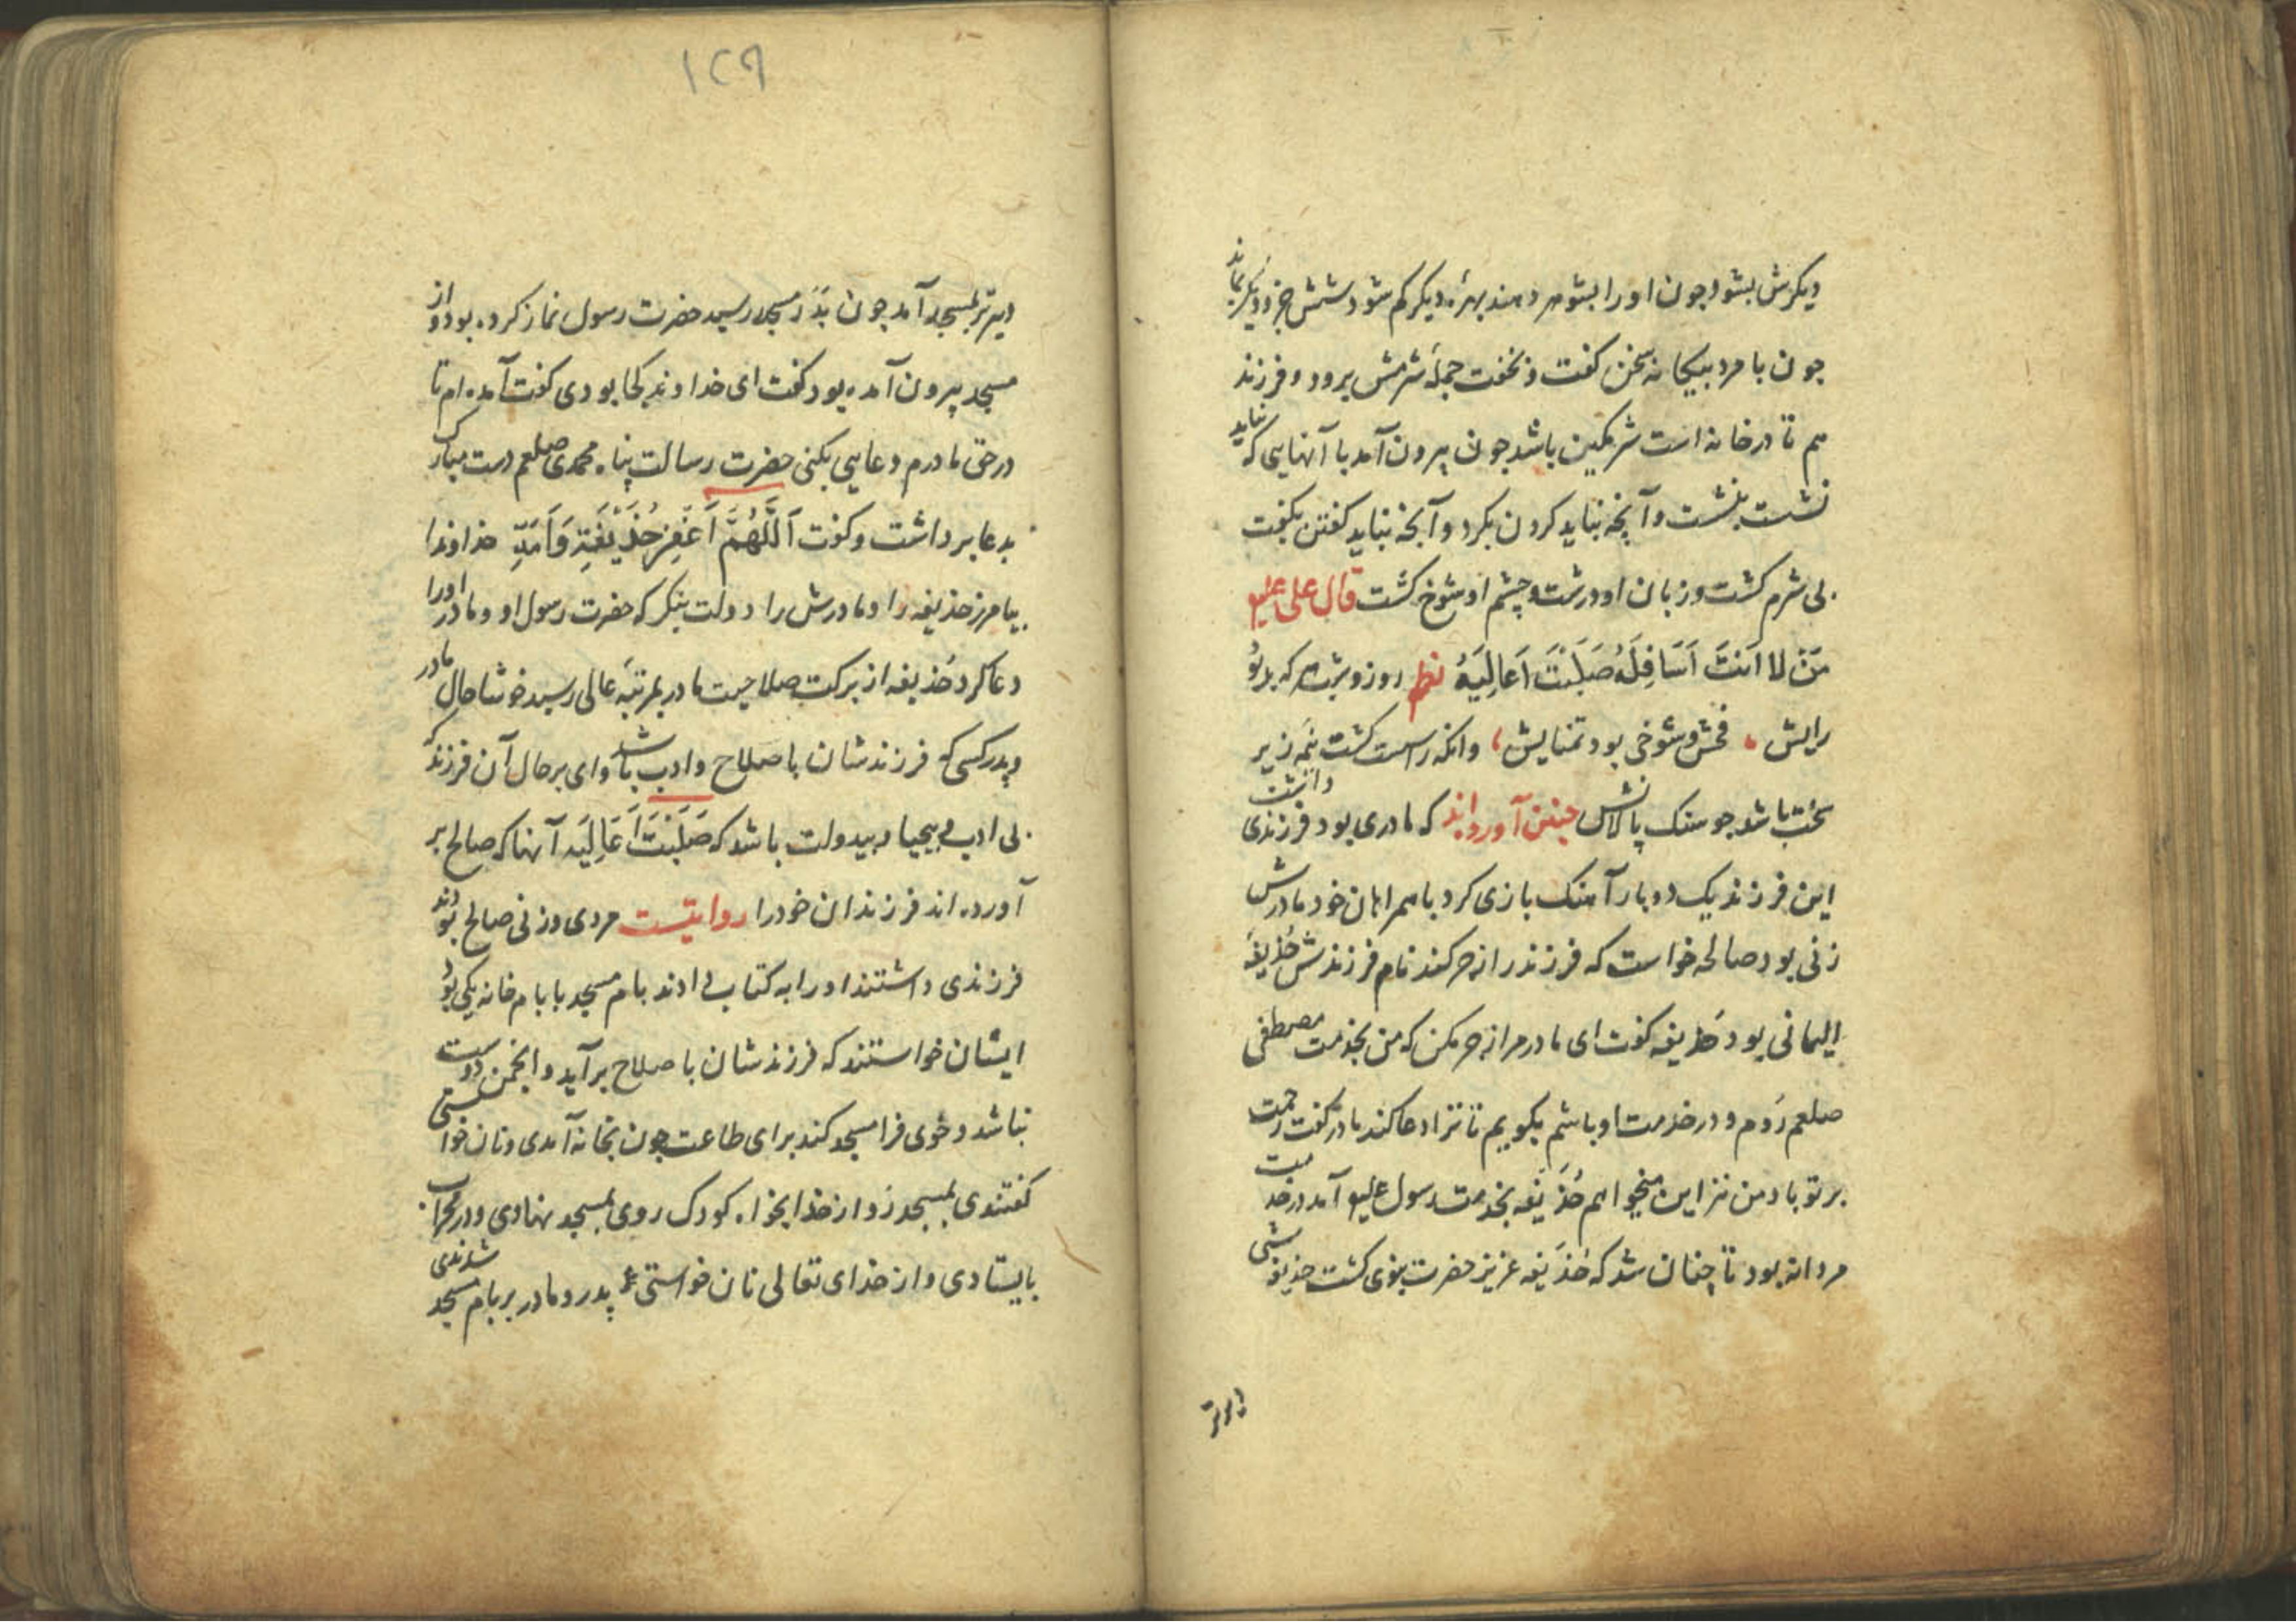 دیکرش بشود چون اورا بشوهر دهند بهرهٔ دیکر کم شود شش جزو دیکر بماند
چون با مرد بیکانه سخن کفت و نخفت جملهٔ شرمش برود و فرزند
هم تا در خانه است شرمکین باشد چون بیرون آمد با آنهایی که نباید
نشست بنشست و آنچه نباید کردن بکرد و آنچه نباید کفتن بکفت
بی شرم کشت و زبان او درشت و چشم او شوخ کشت قال علی علیه
مَنْ لَا اَنَتَ اَسَافِلَهُ صَلَبَتَ اَعَالِیَهُ نظم روز و شب هر که بد بُوَد
رایش فحش و شوخی بود تمنایش وانکه راست کشت نیمهٔ زیر
سخت باشد چو سنک بالایش چنین آورده اند که مادری بود فرزندی داشت
این فرزند یک دو بار آهنک بازی کرد با همراهان خود مادرش
زنی بود صالحه خواست که فرزند را زجر کند نام فرزندش حُذَیفَهٔ
الیمانی بود حذیفه کفت ای مادر مرا زجر مکن که من بخدمت مصطفی
صلعم رَوم و در خدمت او باشم بکویم تا ترا دعا کند مادر کفت رحمت
بر تو باد من نیز این میخواهم حُذَیفَه بخدمت رسول علیه آمد در خدمت
مردانه بود تا چنان شد که حُذَیفَه عزیز حضرت نبوی کشت حذیفه شبی
دیرتر
۱۲۹
دیرتر بمسجد آمد چون بدَرِ مسجد رسید حضرت رسول نماز کرده بود و از
مسجد بیرون آمده بود کفت ای خداوند کجا بودی کفت آمده ام تا
در حق مادرم دعایی بکنی حضرت رسالت پناه محمدی صلعم دست مبارک
بدعا برداشت و کفت اَللَّهُمَّ اَغفِرْ حُذَیْفَةِ وَ اُمِّهِ خداوندا
بیامرز حذیفه را و مادرش را دولت بنکر که حضرت رسول او و مادر اورا
دعا کرد حُذیفه از برکت صلاحیت مادر بمرتبهٔ عالی رسید خوشا حال مادر
و پدر کسی که فرزندشان باصلاح و ادب باشد وای بر حال آن فرزند که
بی ادب و بیحیا و بیدولت باشد که صَلَبَتَ اَعَالِیَه آنها که صالح بر
آورده اند فرزندان خودرا روایتست مردی و زنی صالح بودند
فرزندی داشتند اورا به کتاب دادند بام مسجد با بام خانه یکی بُوَد
ایشان خواستند که فرزندشان باصلاح برآید و انجمن دوست
نباشد و خوی فرا مسجد کند برای طاعت چون بخانه آمدی و نان خواستی
کفتندی بمسجد رَو از خدا بخواه کودک روی بمسجد نهادی و در محراب
بایستادی و از خدای تعالی نان خواستی پدر و مادر بر بام مسجد شدندی